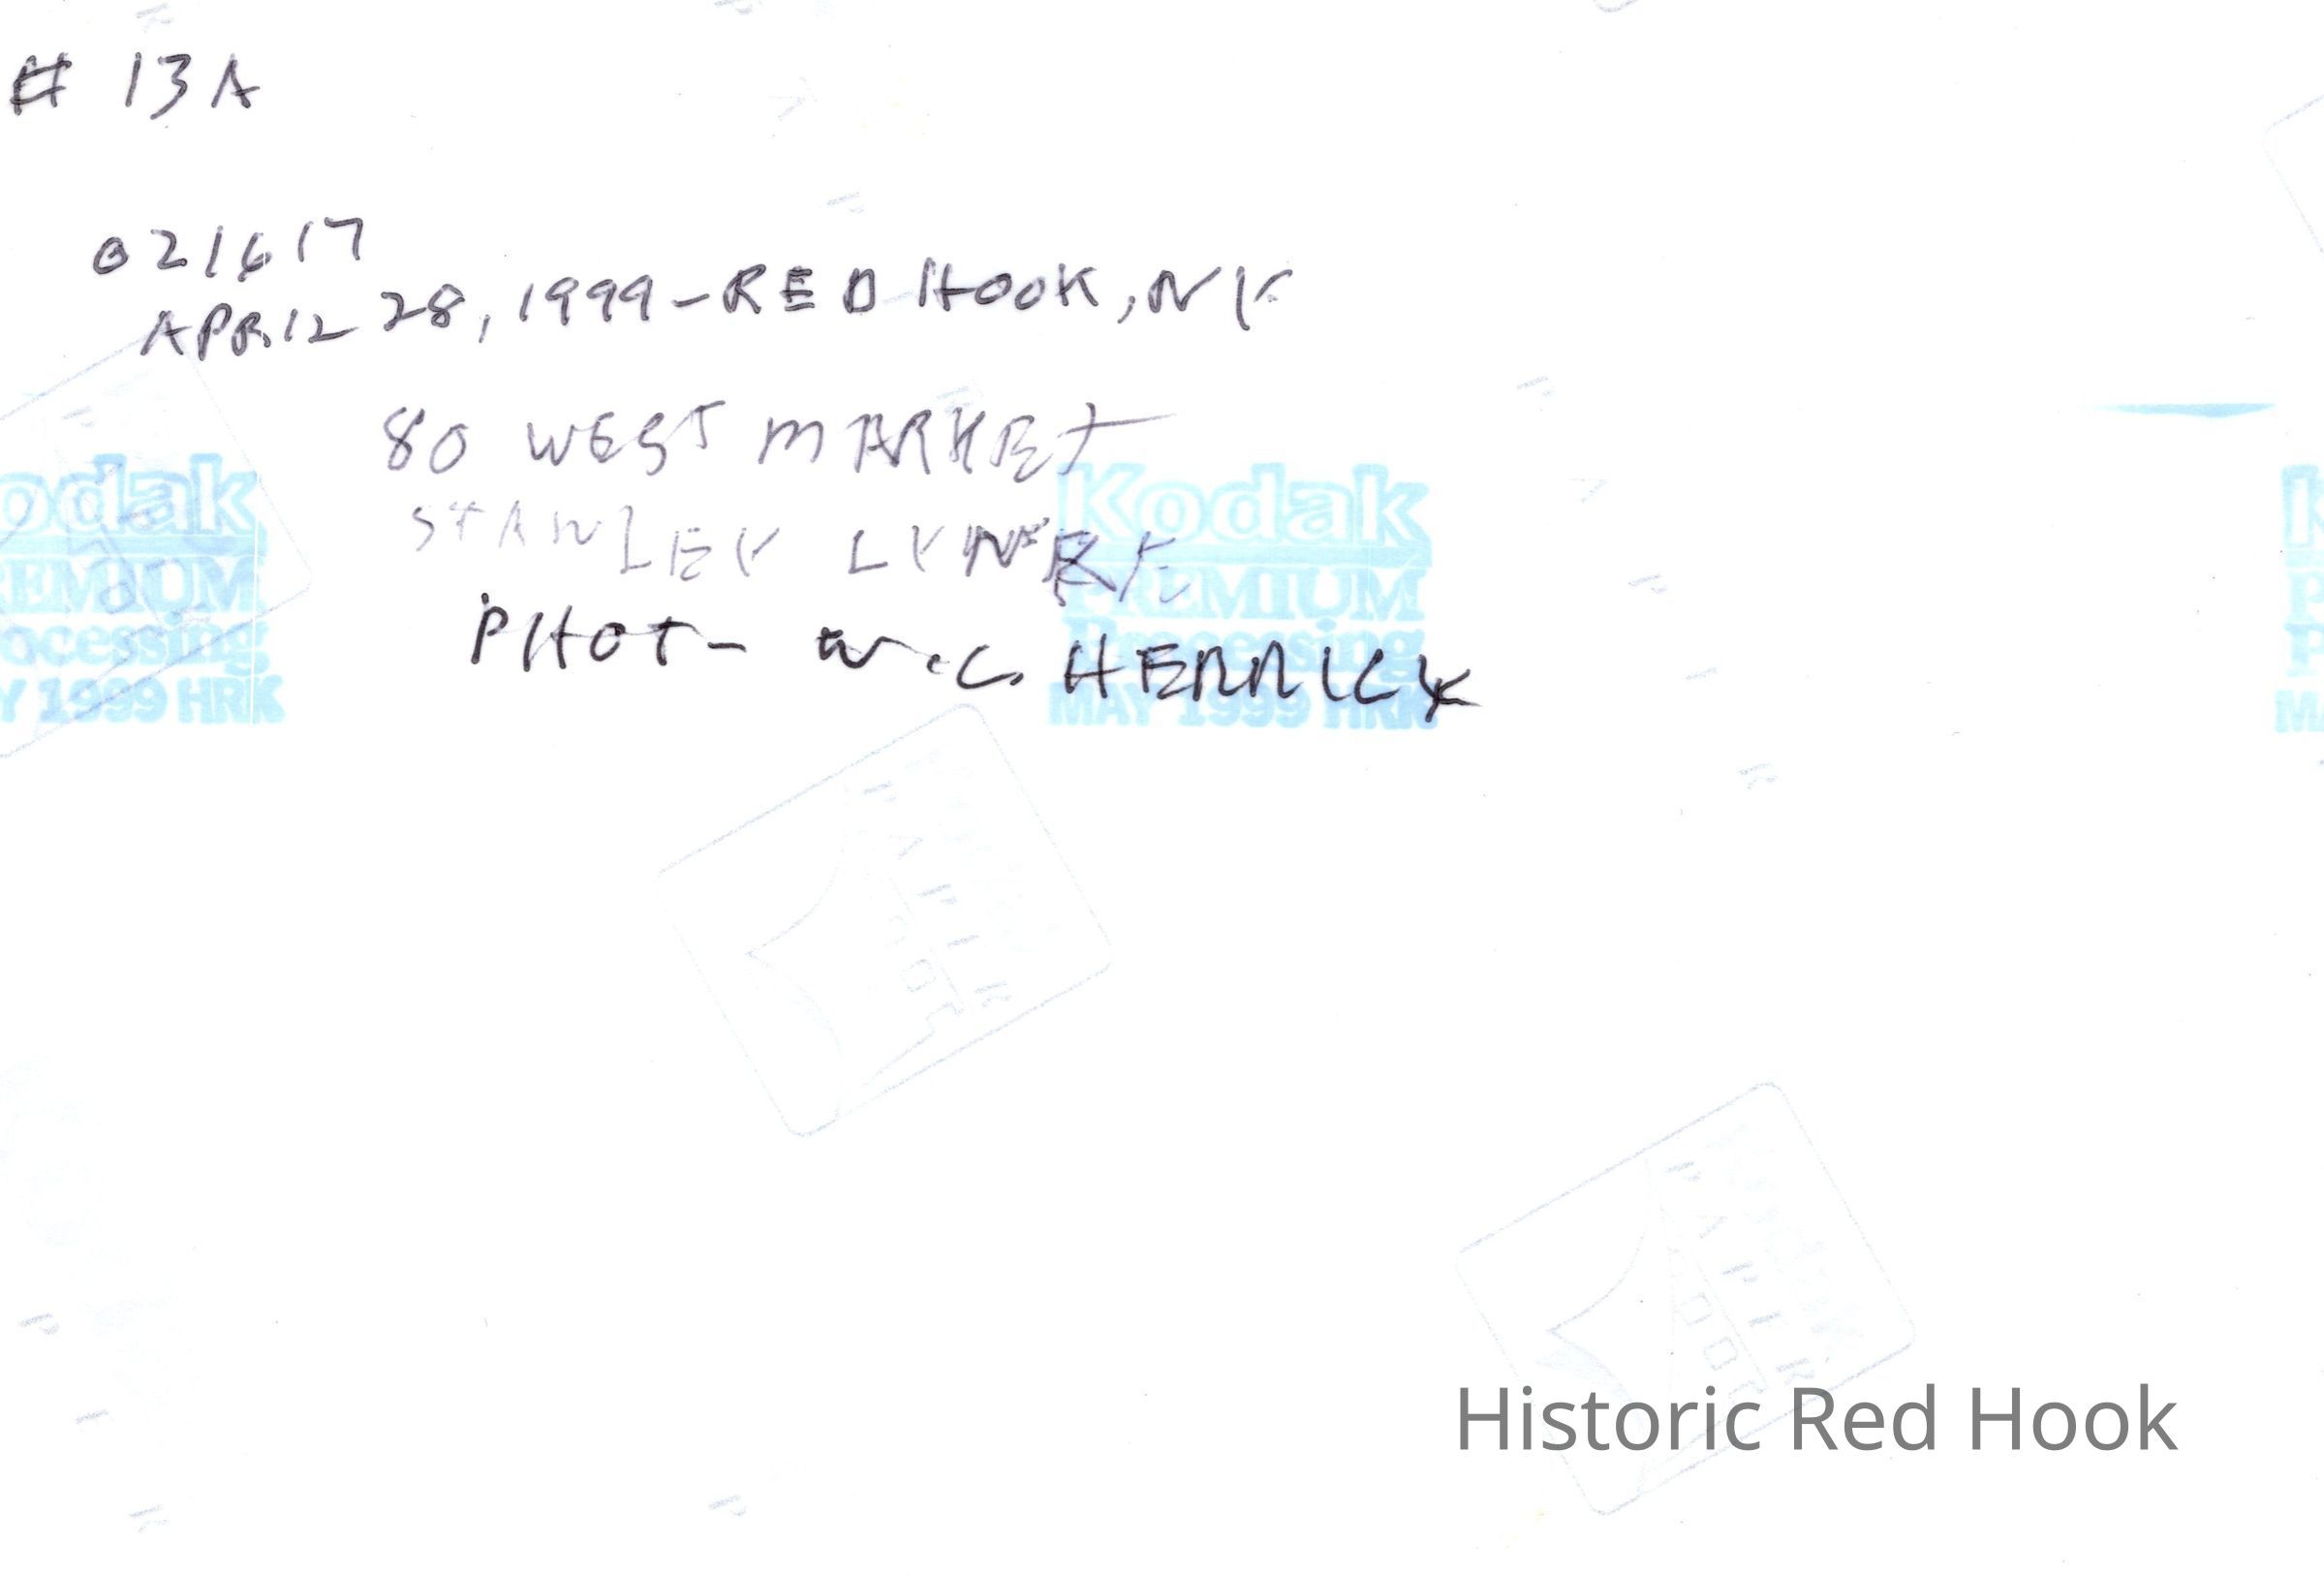 # 13A
021617
APRIL 28, 1999 - RED HOOK, NY
80 WEST MARKET
STANLEY
PHOT - W.C. HERRICK
Kodak
PREMIUM
Processing
MAY 1999 HRK
odak
REMIUM
ocessing
Y 1999 HRK
Historic Red Hook